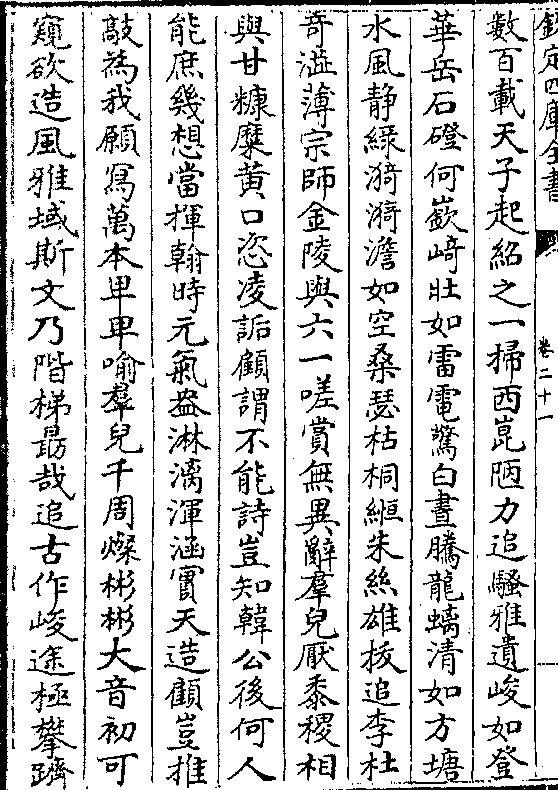 欽定四庫全書
卷二十一
數百載天子起紹之一掃西崑陋力追騷雅遺峻如登
華岳石磴何嶔崎壯如雷電驚白晝騰龍螭清如方塘
水風静緑漪漪澹如空桑瑟枯桐縆朱絲雄拔追李杜
奇澁薄宗師金陵與六一嗟賞無異辭羣兒厭黍稷相
與甘糠糜黄口恣凌詬顧謂不能詩豈知韓公後何人
能庶幾想當揮翰時元氣盎淋漓渾涵實天造顧豈推
敲為我願寫萬本早早喻羣兒千周燦彬彬大音初可
窺欲造風雅域斯文乃階梯勗哉追古作峻途極攀躋